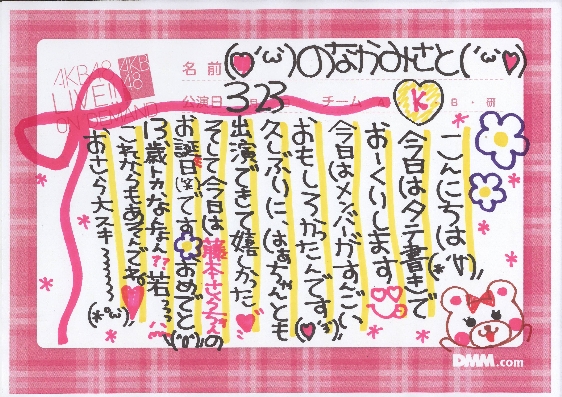 AKB48
LIVE!! ON DEMAND
AKB
48
名前 (♥'ω')のなかみさと('ω'♥)
公演日 3 23 チーム K B・研
こんにちは(*'∀')
今日はタテ書きで
おーくいします
今日はメンバーがすんごい
おもしろかったんです(♥)
久しぶりに、はぁちゃんとも
出演できて嬉しかった♥
そして今日は藤本さくらちゃんの
お誕生日(笑)です おめでと
13歳トカなんなん?? 若っ
これからもめそんでね♥
おさくら大スキ〜〜〜(*'ω')
DMM.com